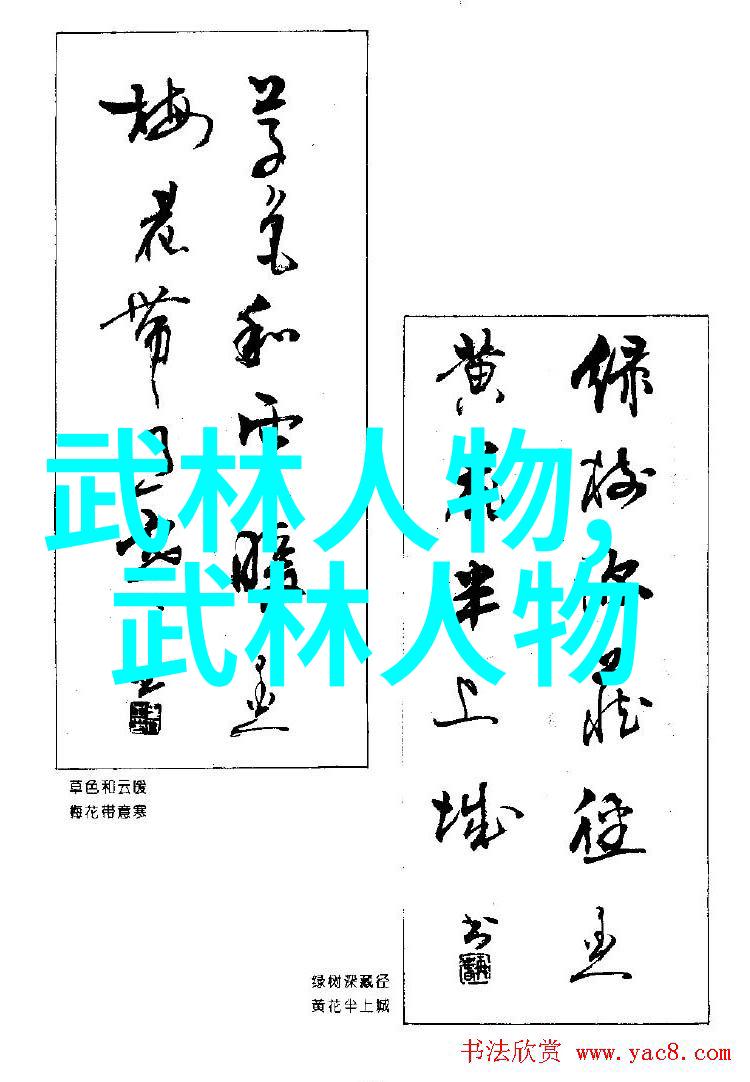 草色和云暖
梅花带
武林人物,
武林人物
草色和云暖
梅花带意寒
绿树深藏径
黄花半上城 书
绿树深藏径
黄花半上城
书法欣赏 www.yac8.com